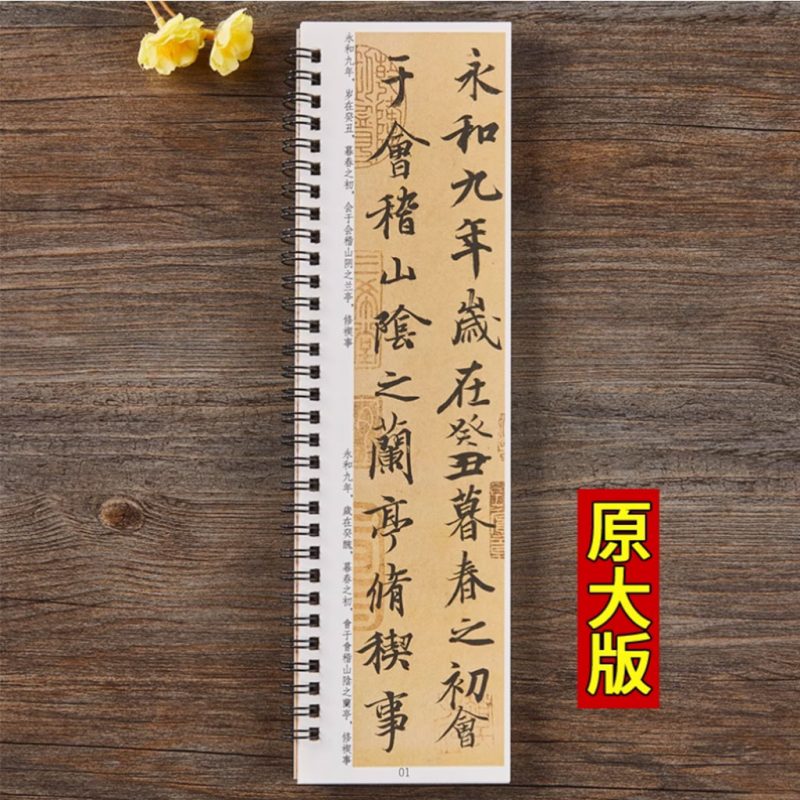 永和九年歲在癸丑暮春之初會
于會稽山陰之蘭亭脩稧事
永和九年，岁在癸丑，暮春之初，会于会稽山阴之兰亭，修禊事
永和九年，歲在癸醜，暮春之初，會于會稽山陰之蘭亭，修禊事
01
原大版